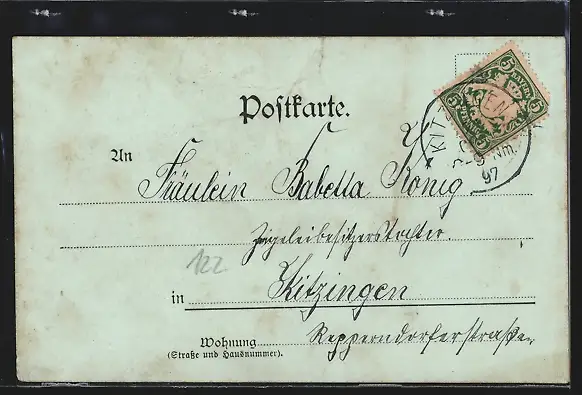 Postkarte.
An Fräulein Babetta König
Ziegeleibesitzerstochter.
122
in Kitzingen
Wohnung Repperndorferstraße
(Straße und Hausnummer).
5 BAYERN 5
5 5
KITZINGEN
Nm.
97